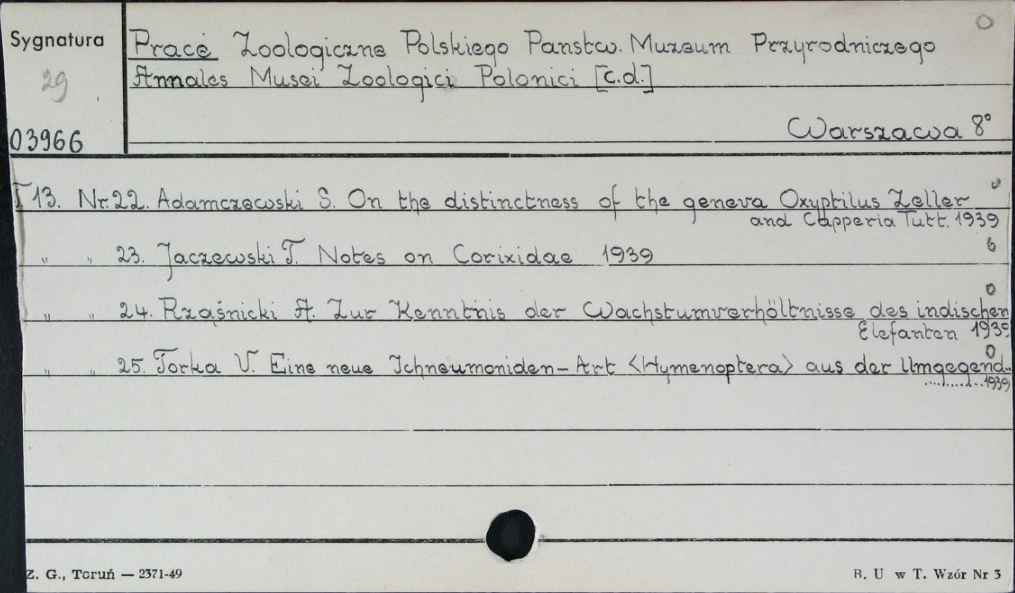 Sygnatura
29
03966
Pracé Zoologiczne Polskiego Państw. Muzeum Przyrodniczego
Annales Musei Zoologici Polonici [c.d.]
Warszawa 8°
T 13. Nr. 22. Adamczewski S. On the distinctness of the geneva Oxyptilus Zeller
and Capperia Tutt. 1939
" " 23. Jaczewski T. Notes on Corixidae 1939
" " 24. Rząśnicki A. Zur Kenntnis der Wachstumverhöltnisse des indischen
Elefanten 1939
" " 25. Torka V. Eine neue Ichneumoniden - Art <Hymenoptera> aus der Umgegend.
...........1939
Z. G., Toruń — 2371-49
B. U w T. Wzór Nr 3